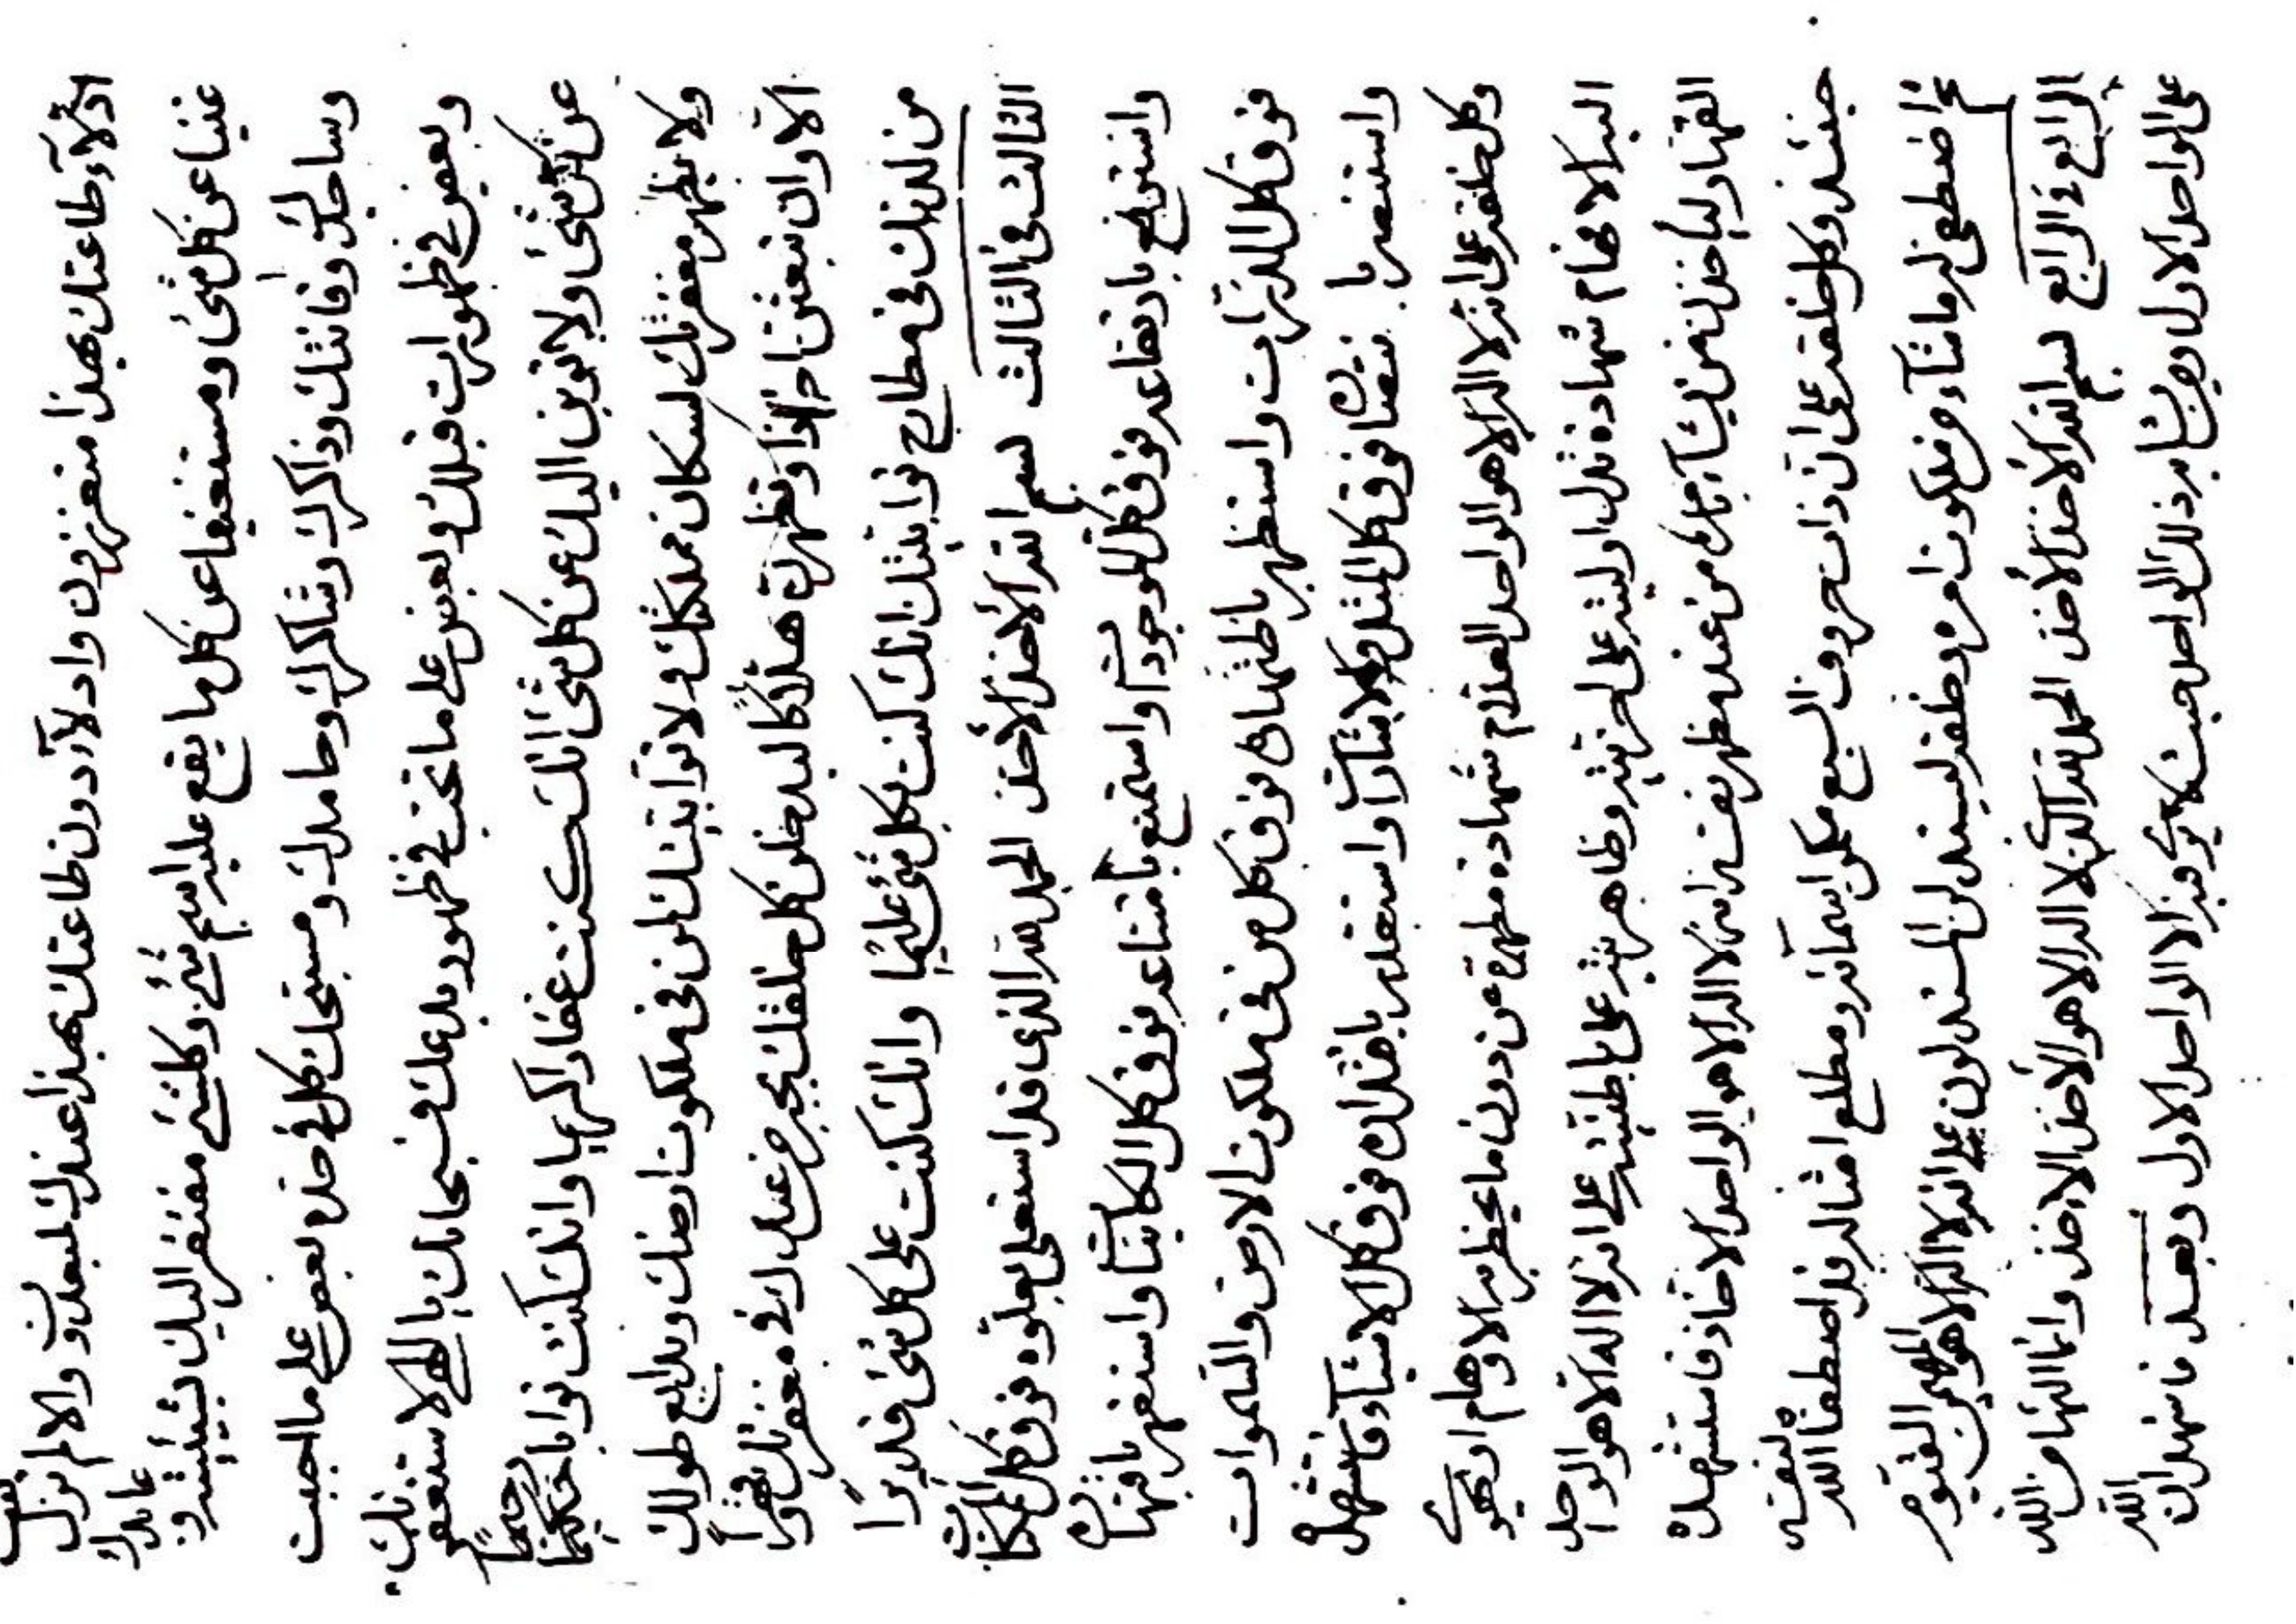 ادلآء طاعتك بهذا متعززون وادلآء دون طاعتك بهذا عندك لمبعدون والا لم تزل
غنيا عن كل شئ ومستغنيا عن كل ما يقع عليه اسم شئ وكلشئ مفتقر اليك بشيئيته و عابدك
وساجدك وقانتك وذاكرك وشاكرك وحامدك ومسبحك كل في حده بعض على ما احببت
وبعض في ظهورات قبلك وبعض على ما تحب في ظهور بدعك فسبحانك يا الهي لاستغفرنك
عن كل شئ ولاتوبن اليك عن كل شئ انك كنت غفارا كريما وانك كنت توابا حكيما رحيما
ولا يظهر مغفرتك لسكان مملكتك ولا توابيتك لمن في ملكوت ارضك وبدايع طولك
الا وان تبعثن احدا وتظهرنه ليدخلن كل خلقك عندك في مغفرتك
من لدنك في مطارح توابيتك انك كنت بكل شئ عليما وانك كنت على كل شئ قديرا
الثالث في الثالث بسم الله الأخذ الأخذ الحمد لله الذي قد استعلى بعلوه فوق كل الممكنات
واسترفع بارتفاعه فوق كل الموجودات واستمنع بامتناعه فوق كل الكائنات واستقهر باقتهاره
فوق كل الذرات واستظهر باظتهاره فوق كل من في ملكوت الارض والسموات
واستنصر بانتصاره فوق كل المثل والاشارات واستقدر باقتداره فوق كل الاشيآء فاستشهده
وكل خلقه على انه لا اله الا هو الواحد العلام شهادة مطهرة عن دون ما يخطر به الاوهام او يهوى
اليه الافهام شهادة تدل اوليته على اخريته وظاهريته على باطنيته على انه لا اله الا هو الواحد
القهار ليأخذن من يشآء بامره من عند مظهر نفسه انه لا اله الا هو الواحد الاخاذ فاستشهده
حينئذ وكل خلقه على ان ذات حروف السبع مكمن اسمآئه ومطلع امثاله قد اصطفا الله لنفسه
ثم اصطفى له ما شآء من ملكوت امره وخلقه ليستدلن المستدلون على انه لا اله الا هو المهيمن القيوم
الرابع في الرابع بسم الله الأخذ الأخذ الحمد لله الذي لا اله الا هو الأخذ الاخذ وانما البهآء من الله
على الواحد الاول ومن يشابه ذلك الواحد حيث لا يرى فيه الا الواحد الاول وبعد فاشهد ان الله